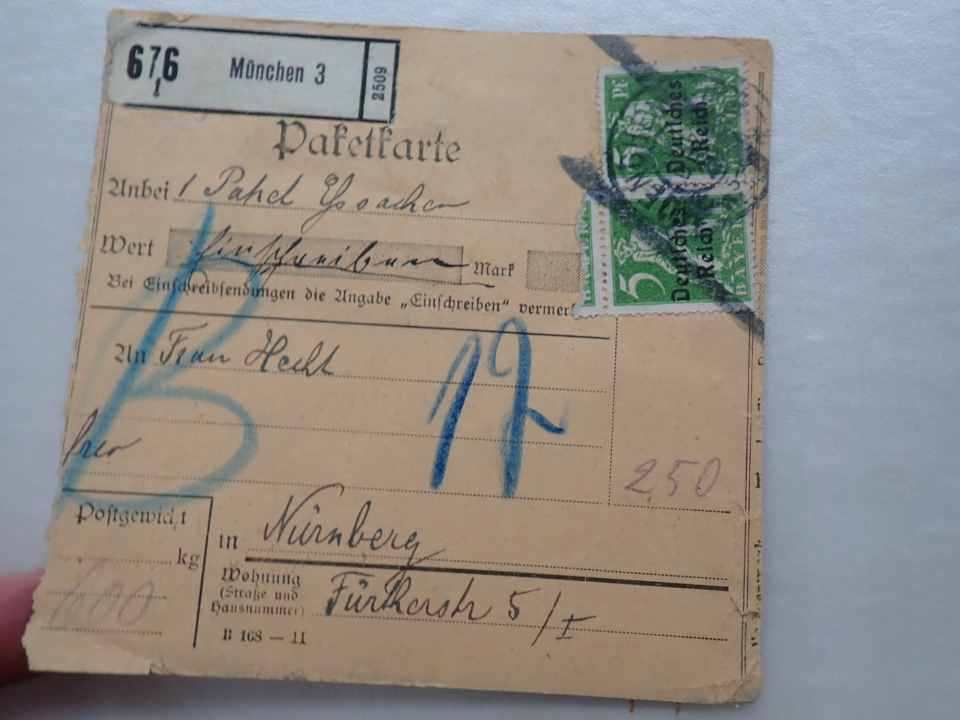 676 München 3 2509
1
Paketkarte
Anbei 1 Paket Esssachen
Wert Einschreiben Mark
Bei Einschreibsendungen die Angabe „Einschreiben“ vermer
An Frau Hecht
B 17
frei
250
Postgewicht
kg
600
in Nürnberg
Wohnung
(Straße und
Hausnummer) Fürtherstr 5/I
B 168 — 11
5 Pf
Deutsches
Reich
5
Deutsches
Reich
BAYERN